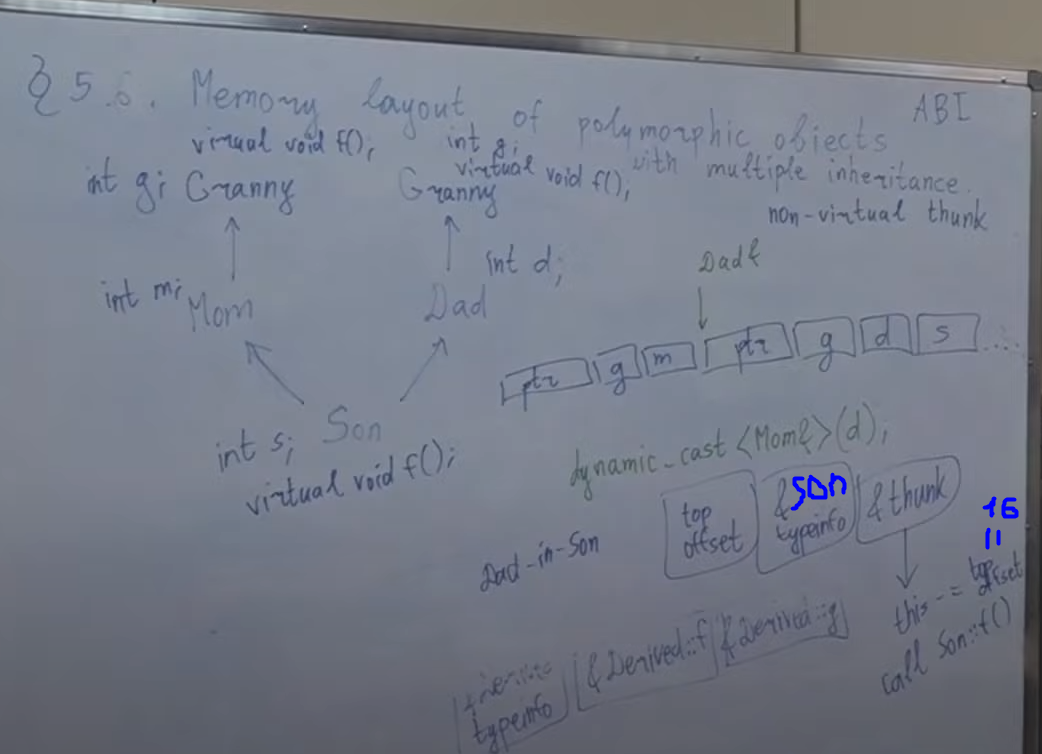 § 5.6. Memory layout of polymorphic objects
ABI
with multiple inheritance.
non-virtual thunk
virtual void f();
int g; Granny
int g;
virtual void f();
Granny
int m; Mom
int d;
Dad
int s; Son
virtual void f();
Dad&
ptr g m ptr g d s ...
dynamic_cast <Mom&>(d);
Dad-in-Son
top offset
&SON typeinfo
&thunk
16
=
this -= top offset
call Son::f()
typeinfo
&Derived::f
&Derived::g